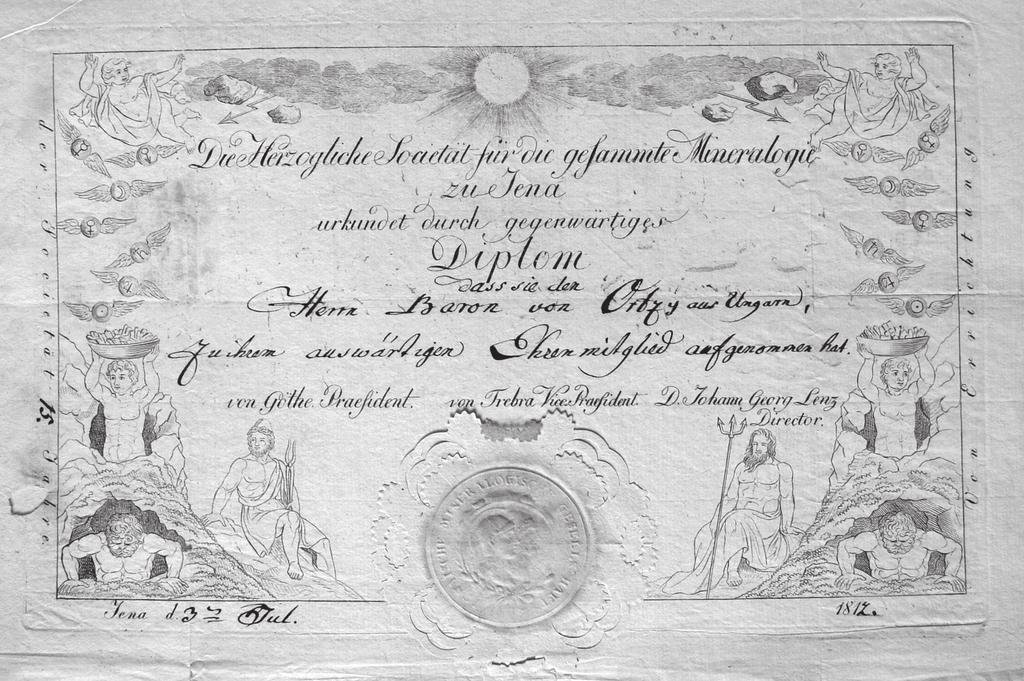 Die Herzogliche Societät für die gesammte Mineralogie
zu Jena
urkundet durch gegenwärtiges
Diplom
dass sie den
Herrn Baron von Orbzy aus Ungarn,
zu ihrem auswärtigen Ehrenmitglied aufgenommen hat.
von Göthe Praesident. von Trebra Vice Praesident. D. Johann Georg Lenz
Director.
Jena d. 3ten Jul. 1812.
Von Errichtung
der Societät 15. Jahre
MINERALOGISCHE